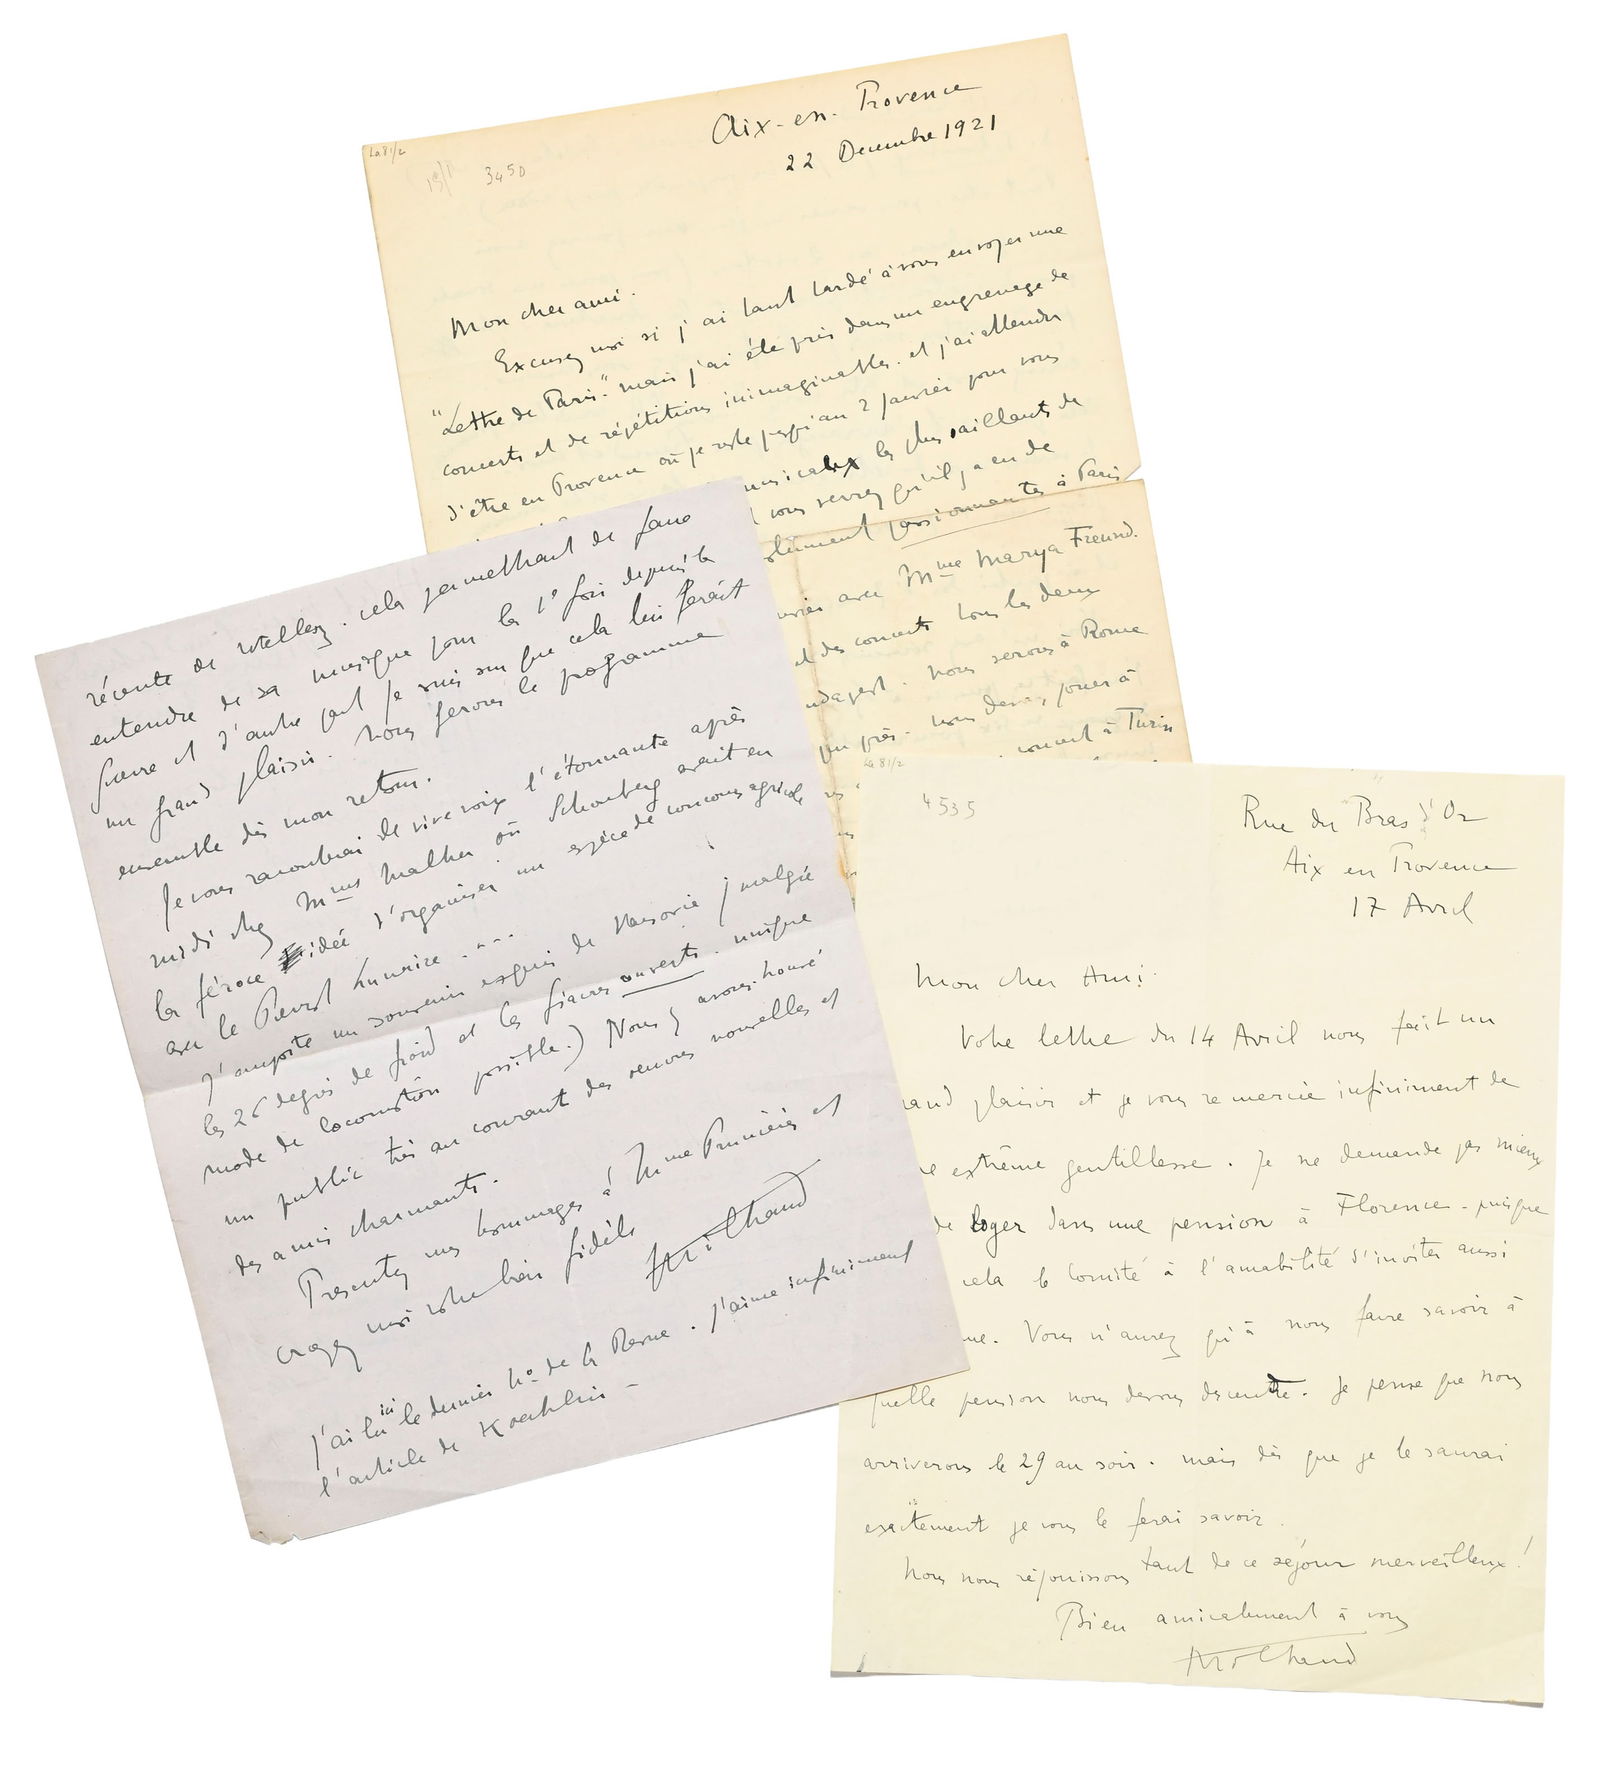 La 81/2
3450
Aix-en-Provence
22 Decembre 1921
Mon cher ami.
Excusez moi si j'ai tant tardé à vous envoyer une
"Lettre de Paris." mais j'ai été pris dans un engrenage de
concerts et de répétitions inimaginables. et j'ai attendu
d'être en Provence où je reste jusqu'au 2 Janvier pour vous
musicaux les plus saillants de
vous verrez qu'il y a eu de
passionnantes à Paris
avec Mme Marya Freund.
et des concerts tous les deux
nous serons à Rome
peu près. nous devons jouer à
concert à Turin
récente de Wellesz. cela permettant de faire
entendre de sa musique pour la 1e fois depuis la
guerre et d'autre part je suis sur que cela lui ferait
un grand plaisir. Nous ferons le programme
ensemble dès mon retour.
Je vous raconterai de vive voix l'étonnante après
midi chez Mme Malher où Schonberg avait eu
la féroce idée d'organiser un espèce de concours agricole
avec le Pierrot Lunaire ...
J'emporte un souvenir exquis de Varsovie (malgré
les 26 degrés de froid et les fiacres ouverts. unique
mode de locomotion possible.) Nous y avons trouvé
un public très au courant des œuvres nouvelles et
des amis charmants.
Presentez mes hommages à Mme Prunières et
croyez moi votre bien fidèle
Milhaud
J'ai lu ici le dernier No de la Revue. J'aime infiniment
l'article de Koechlin -
La 81/2
4535
Rue du Bras d'Or
Aix en Provence
17 Avril
Mon cher Ami.
Votre lettre du 14 Avril nous fait un
grand plaisir et je vous remercie infiniment de
extrême gentillesse. Je ne demande pas mieux
de loger dans une pension à Florence. puisque
cela le Comité à l'amabilité d'inviter aussi
Vous n'aurez qu'à nous faire savoir à
quelle pension nous devons descendre. Je pense que nous
arriverons le 29 au soir. mais dès que je le saurai
exactement je vous le ferai savoir.
Nous nous réjouissons tant de ce séjour merveilleux!
Bien amicalement à vous
Milhaud